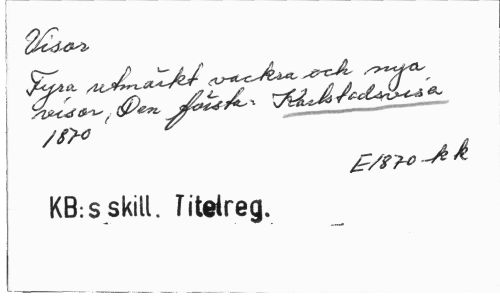 Visor
Fyra utmärkt vackra och nya
visor, Den första: Karlstadsvisa
1870
E1870 kk
KB:s skill. Titelreg.